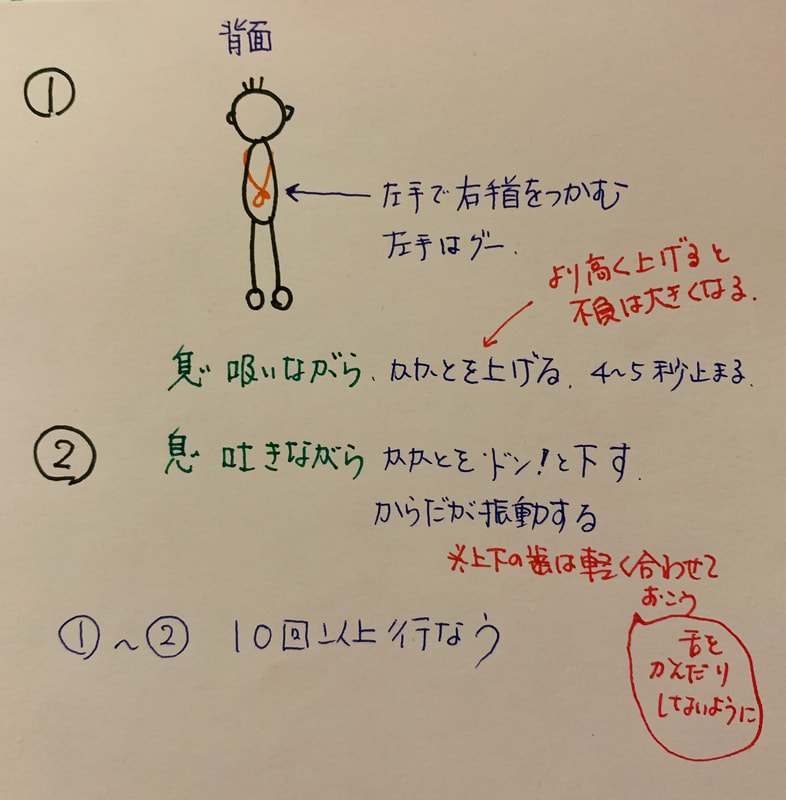 背面
①
左手で右手首をつかむ
左手はグー.
より高く上げると
不負は大きくなる.
息 吸いながら、かかとを上げる. 4~5秒止まる.
② 息 吐きながら かかとをドン!と下す.
からだが振動する
※上下の歯は軽く合わせて
おこう
舌を
かんだり
しないように
①~② 10回以上行なう